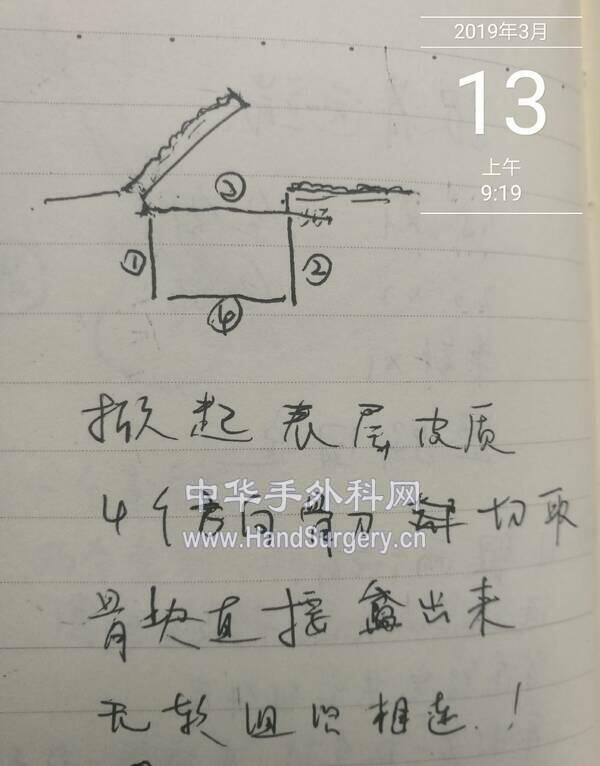 2019年3月
13
上午
9:19
③
①
②
④
掀起表层皮质
4个方向骨刀 切取
中华手外科网
www.HandSurgery.cn
骨块直接 出来
无软组织相连.!